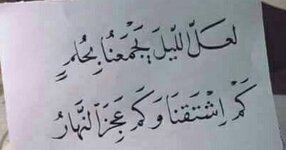 لعلَّ الليلَ يَجْمَعُنَا بِحُلمٍ
كَمْ اِشْتَقنَا وَكَم عَجِزَ النَّهَارُ